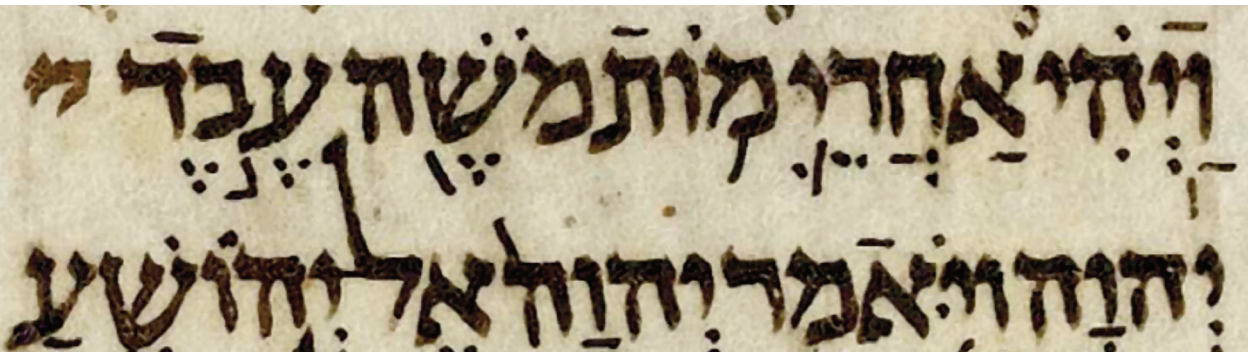 ויהי אחרי מות משה עבד י
יהוה ויאמר יהוה אל יהושע